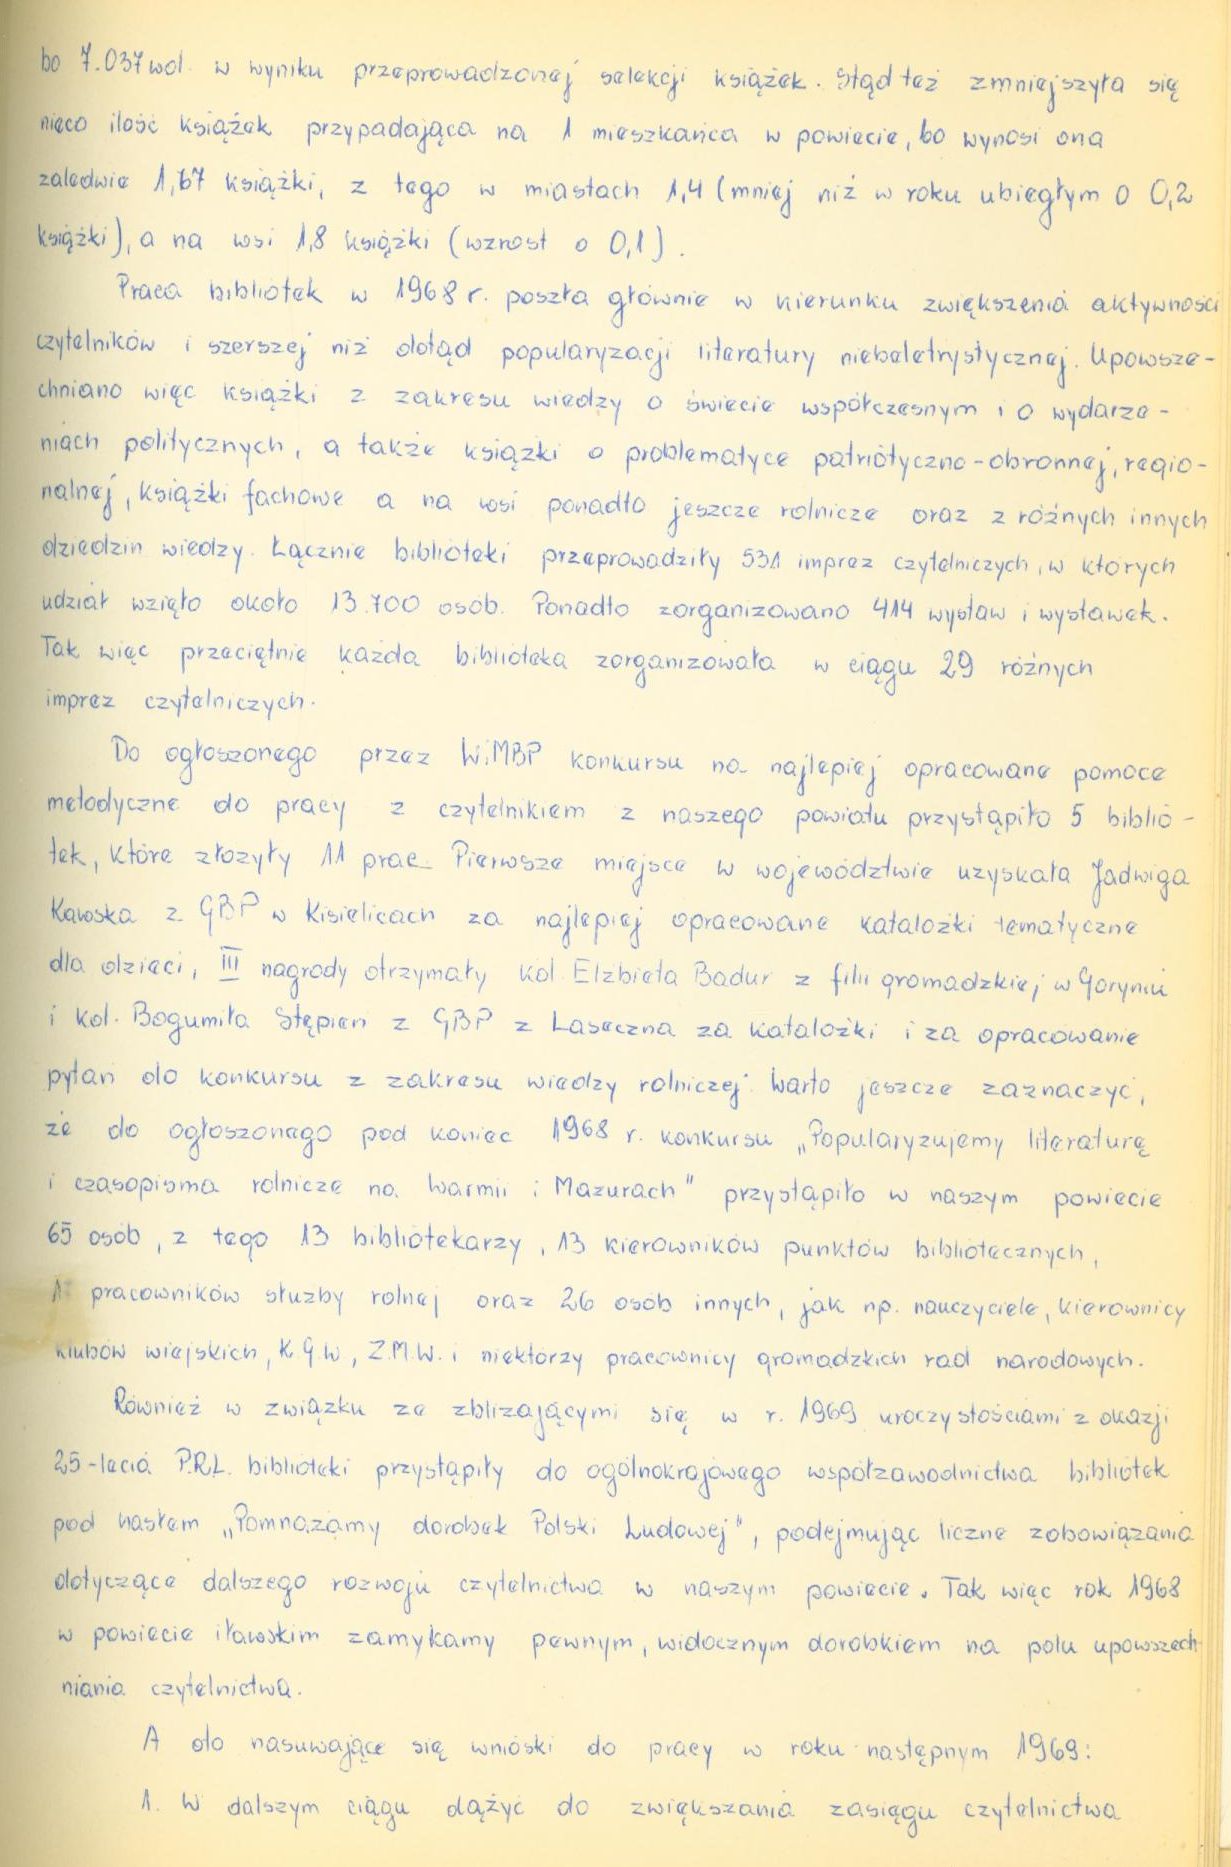 bo 7.037 wol. w wyniku przeprowadzonej selekcji książek. Stąd też zmniejszyła się
nieco ilość książek przypadająca na 1 mieszkańca w powiecie, bo wynosi ona
zaledwie 1,67 książki, z tego w miastach 1,4 (mniej niż w roku ubiegłym o 0,2
książki), a na wsi 1,8 książki (wzrost o 0,1).
Praca bibliotek w 1968 r. poszła głównie w kierunku zwiększenia aktywności
czytelników i szerszej niż dotąd popularyzacji literatury niebeletrystycznej. Upowsze-
chniano więc książki z zakresu wiedzy o świecie współczesnym i o wydarze-
niach politycznych, a także książki o problematyce patriotyczno-obronnej, regio-
nalnej, książki fachowe a na wsi ponadto jeszcze rolnicze oraz z różnych innych
dziedzin wiedzy. Łącznie biblioteki przeprowadziły 531 imprez czytelniczych, w których
udział wzięło około 13.700 osób. Ponadto zorganizowano 414 wystaw i wystawek.
Tak więc przeciętnie każda biblioteka zorganizowała w ciągu 29 różnych
imprez czytelniczych.
Do ogłoszonego przez WiMBP konkursu na najlepiej opracowane pomoce
metodyczne do pracy z czytelnikiem z naszego powiatu przystąpiło 5 biblio-
tek, które złożyły 11 prac. Pierwsze miejsce w województwie uzyskała Jadwiga
Kawska z GBP w Kisielicach za najlepiej opracowane kataložki tematyczne
dla dzieci, III nagrody otrzymały kol. Elżbieta Badur z filii gromadzkiej w Goryniu
i kol. Bogumiła Stępień z GBP z Laseczna za katalożki i za opracowanie
pytań do konkursu z zakresu wiedzy rolniczej. Warto jeszcze zaznaczyć,
że do ogłoszonego pod koniec 1968 r. konkursu „Popularyzujemy literaturę
i czasopisma rolnicze na Warmii i Mazurach" przystąpiło w naszym powiecie
65 osób, z tego 13 bibliotekarzy, 13 kierowników punktów bibliotecznych,
pracowników służby rolnej oraz 26 osób innych, jak np. nauczyciele, kierownicy
klubów wiejskich, K.G.W, Z.M.W. i niektórzy pracownicy gromadzkich rad narodowych.
Również w związku ze zbliżającymi się w r. 1969 uroczystościami z okazji
25-lecia P.R.L. biblioteki przystąpiły do ogólnokrajowego współzawodnictwa bibliotek
pod hasłem „Pomnażamy dorobek Polski Ludowej", podejmując liczne zobowiązania
dotyczące dalszego rozwoju czytelnictwa w naszym powiecie. Tak więc rok 1968
w powiecie iławskim zamykamy pewnym, widocznym dorobkiem na polu upowszech
niania czytelnictwa.
A oto nasuwające się wnioski do pracy w roku następnym 1969:
1. W dalszym ciągu dążyć do zwiększania zasięgu czytelnictwa